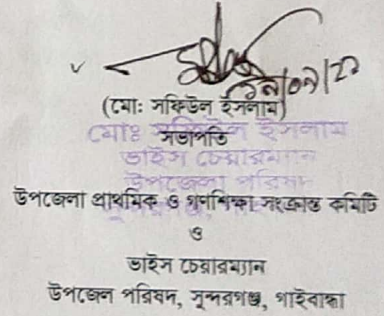 (মোঃ সফিউল ইসলাম)
মোঃ সফিউল ইসলাম
সভাপতি
ভাইস চেয়ারম্যান
উপজেলা পরিষদ
উপজেলা প্রাথমিক ও গণশিক্ষা সংক্রান্ত কমিটি
ও
ভাইস চেয়ারম্যান
উপজেলা পরিষদ, সুন্দরগঞ্জ, গাইবান্ধা